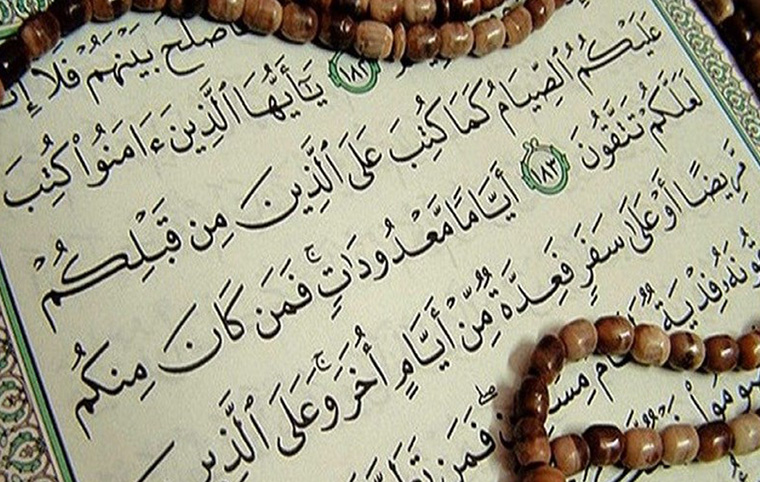 فَأَصْلَحَ بَيْنَهُمْ فَلَآ إِثْمَ
١٨٢ يَٰٓأَيُّهَا ٱلَّذِينَ ءَامَنُوا۟ كُتِبَ
عَلَيْكُمُ ٱلصِّيَامُ كَمَا كُتِبَ عَلَى ٱلَّذِينَ مِن قَبْلِكُمْ
لَعَلَّكُمْ تَتَّقُونَ ١٨٣ أَيَّامًا مَّعْدُودَٰتٍ ۚ فَمَن كَانَ مِنكُم
مَّرِيضًا أَوْ عَلَىٰ سَفَرٍ فَعِدَّةٌ مِّنْ أَيَّامٍ أُخَرَ ۚ وَعَلَى ٱلَّذِينَ
فِدْيَةٌ طَعَامُ فَمَن